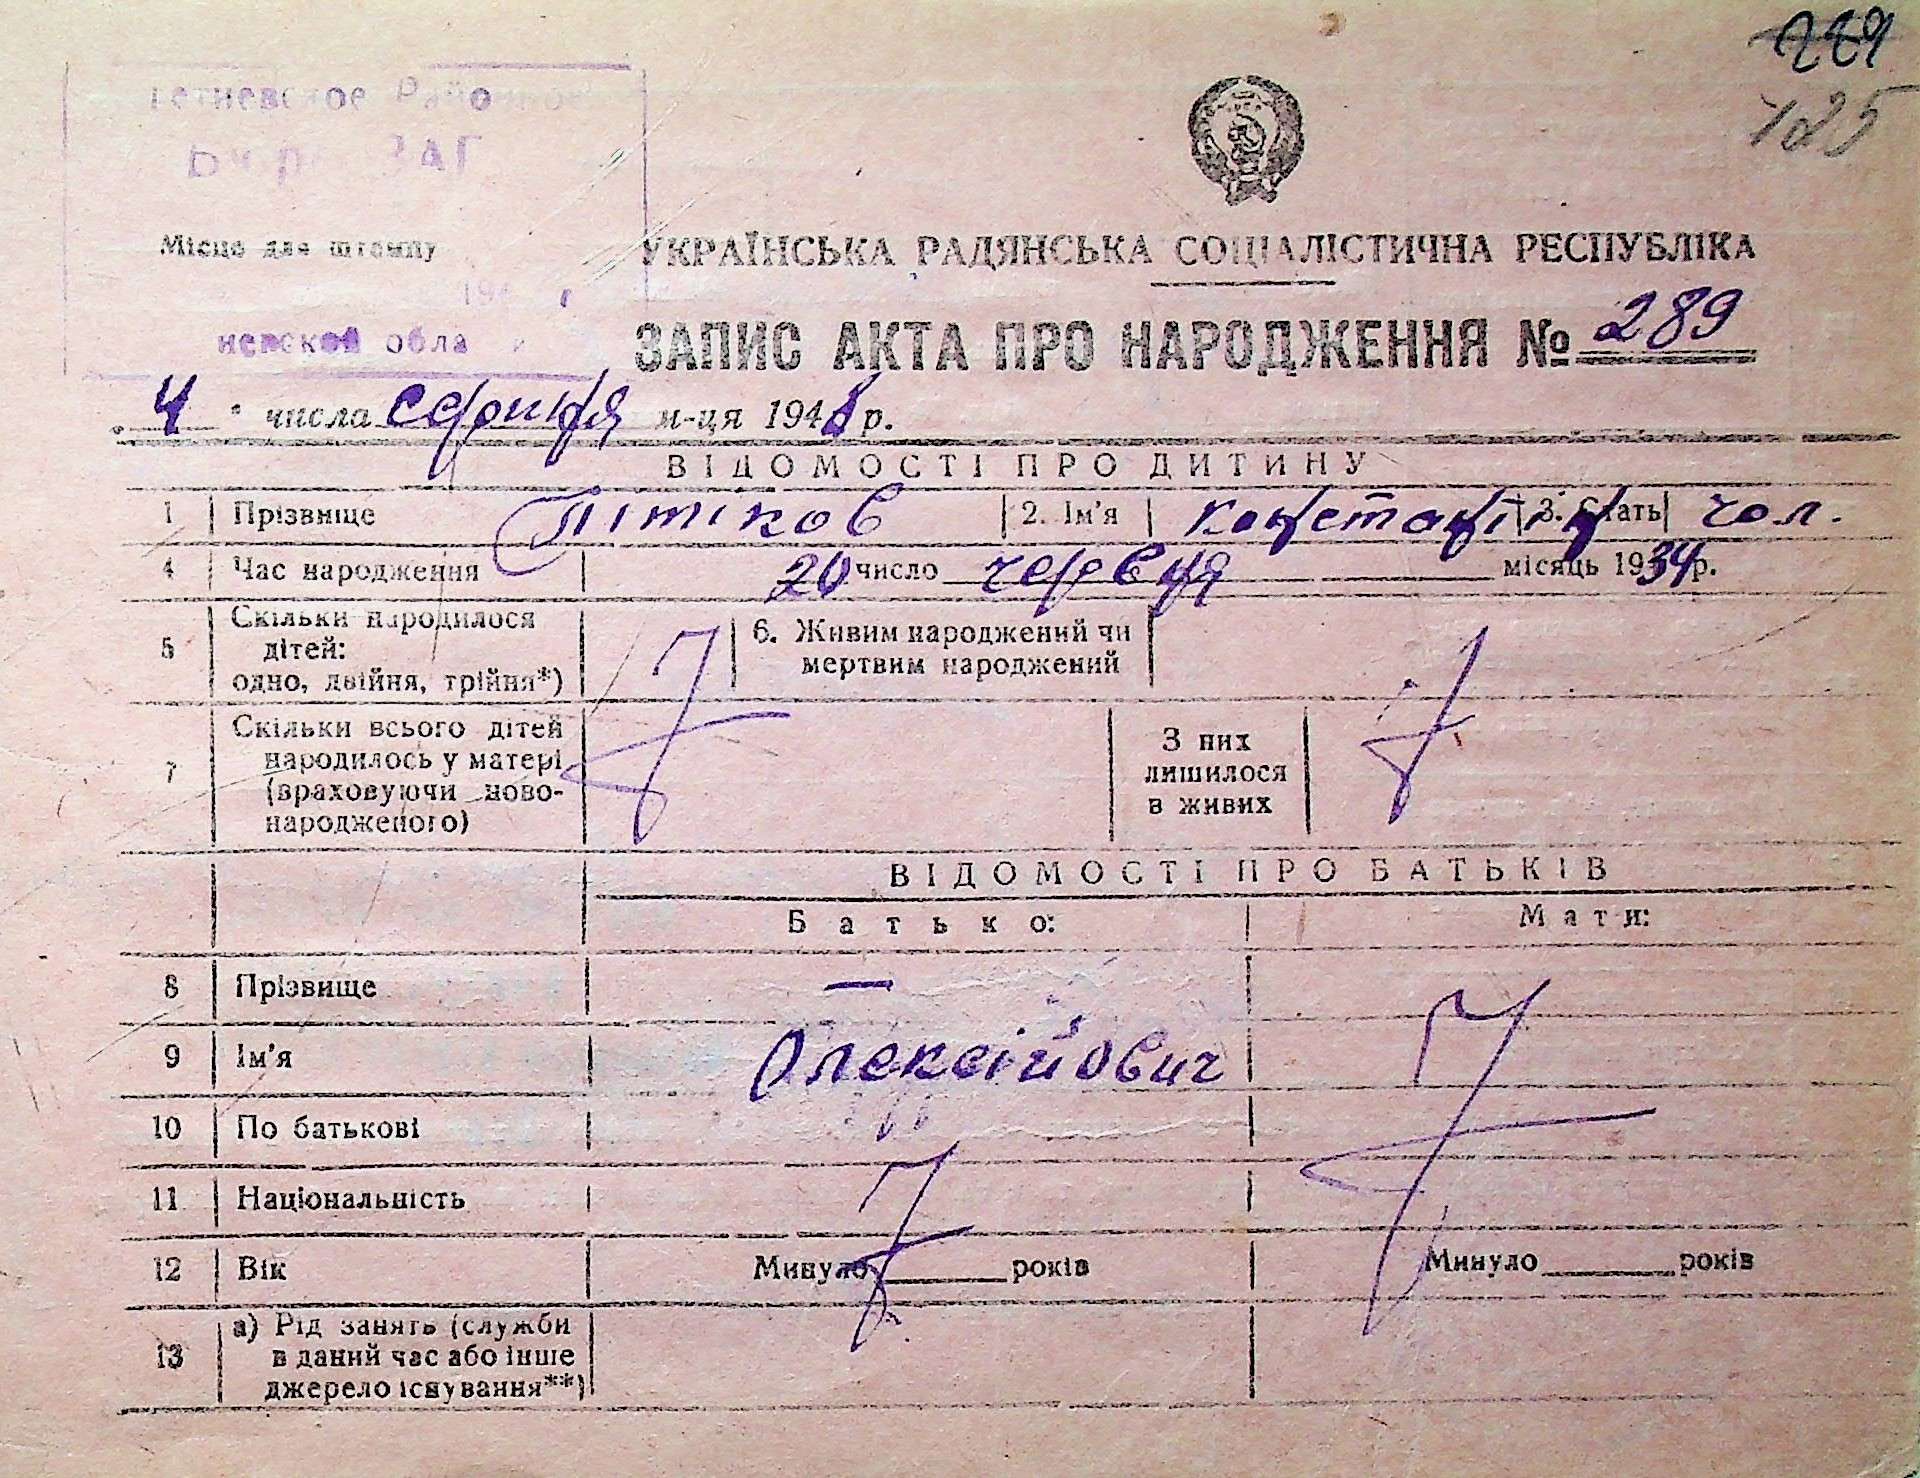 289
125
Місце для штампу
УКРАЇНСЬКА РАДЯНСЬКА СОЦІАЛІСТИЧНА РЕСПУБЛІКА
ЗАПИС АКТА ПРО НАРОДЖЕННЯ № 289
4 числа серпня м-ця 194 р.
ВІДОМОСТІ ПРО ДИТИНУ
1 Прізвище Пітіков 2. Ім'я Констанін 3. Стать чол.
4 Час народження 20 число червня місяць 1934 р.
5 Скільки народилося
дітей:
одно, двійня, трійня*)
6. Живим народжений чи
мертвим народжений
7 Скільки всього дітей
народилось у матері
(враховуючи ново-
народженого)
З них
лишилося
в живих
ВІДОМОСТІ ПРО БАТЬКІВ
Батько: Мати:
8 Прізвище —
9 Ім'я Олексійович
10 По батькові
11 Національність
12 Вік Минуло ____ років Минуло ____ років
13 а) Рід занять (служби
в даний час або інше
джерело існування**)